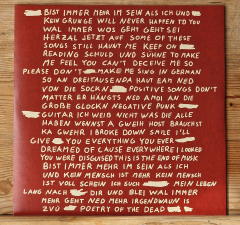 BIST IMMER MEHR IM SEIN ALS ICH UND
KEIN GRUNGE WILL NEVER HAPPEN TO YOU
WAL IMMER WOS GEHT GEHT SEI
HERZAL JETZT AUF SOME OF THESE
SONGS STILL HAUNT ME KEEP ON
READING SCHULD UND SÜHNE TO MAKE
ME FEEL YOU CAN'T DECEIVE ME SO
PLEASE DON'T MAKE ME SING IN GERMAN
SO AN DREITAUSENDA HAUT EAM NED
VON DIE SOCKN POSITIVE SONGS DON'T
MATTER ER HÄNGTS NED AMOI AN DIE
GROßE GLOCKN NEGATIVE PUNK
GUITAR ICH WEIß NICHT WAS DIE ALLE
HABEN WENNST A GWEIH HOST BRAUCHST
KA GWEHR I BROKE DOWN SMILE I'LL
GIVE YOU EVERYTHING YOU EVER
DREAMED OF CAUSE EVERYWHERE I LOOKED
YOU WERE DISGUISED THIS IS THE END OF MUSIC
BIST IMMER MEHR IM SEIN ALS ICH
UND KEIN MENSCH IST MEHR KEIN MENSCH
IST VOLL SCHEIN ICH SUCH MEIN LEBEN
LANG NACH DIR UND BLEI WAL IMMER
MEHR GEHT NED MEHR IRGENDWAUN IS
ZVÜ POETRY OF THE DEAD